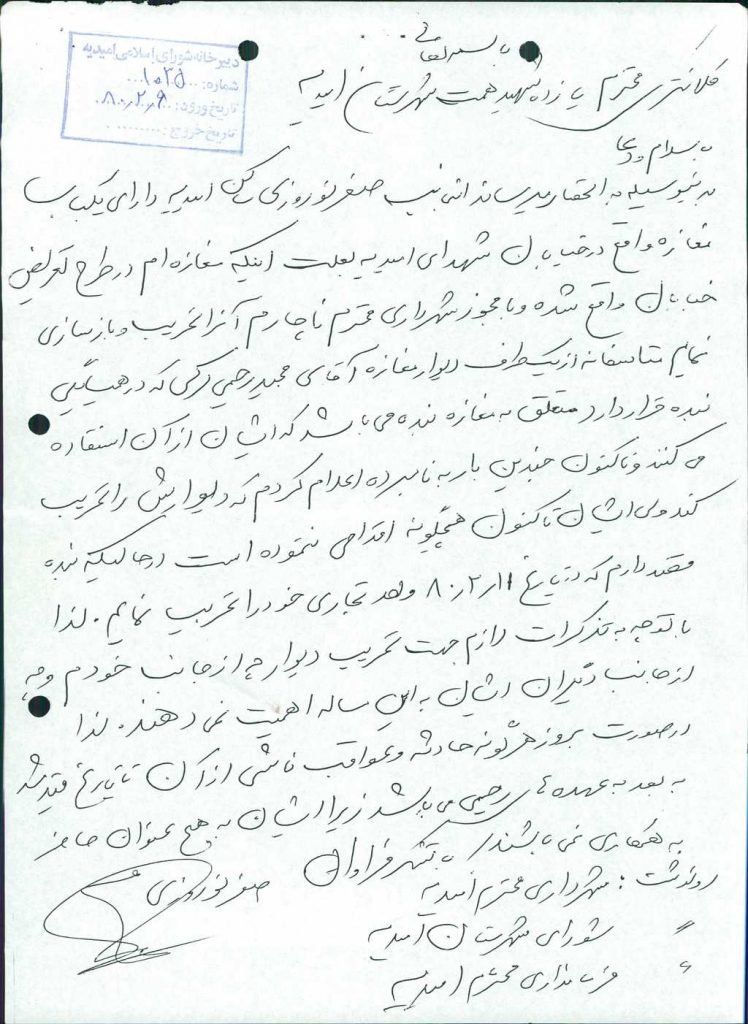 باسمه تعالی
دبیرخانه شورای اسلامی امیدیه
شماره: ۱۰۲۵
تاریخ ورود: ۸۰٫۲٫۹
تاریخ خروج:
کلانتری محترم یازده شهید همت شهرستان امیدیه
با سلام و دعا
بدینوسیله به استحضار میرساند اینجانب صفر نوروزی ساکن امیدیه دارای یکباب
مغازه واقع در خیابان شهدای امیدیه بعلت اینکه مغازه ام در طرح تعریض
خیابان واقع شده و با مجوز شهرداری محترم ناچارم آنرا تخریب و بازسازی
نمایم متاسفانه از یک طرف دیوار مغازه آقای مجید رحیمی که در همسایگی
بنده قرار دارد متعلق به مغازه بنده می باشد که ایشان از آن استفاده
می کنند و تاکنون چندین بار به نامبرده اعلام کردم که دیوارش را تخریب
کند ولی ایشان تاکنون هیچگونه اقدامی ننموده است در حالیکه بنده
قصد دارم که در تاریخ ۸۰٫۲٫۱۱ واحد تجاری خود را تخریب نمایم. لذا
با توجه به تذکرات لازم جهت تخریب دیوار چه از جانب خودم و چه
از جانب دیگران ایشان به این مساله اهمیت نمی دهند. لذا
در صورت بروز هرگونه حادثه و عواقب ناشی از آن تا تاریخ قید شده
به بعد به عهده رحیمی می باشد زیرا ایشان به هیچ عنوان حاضر
به همکاری نمی باشند/ با تشکر فراوان
صفر نوروزی
رونوشت: شهرداری محترم امیدیه
〃 شورای شهرستان امیدیه
〃 فرمانداری محترم امیدیه